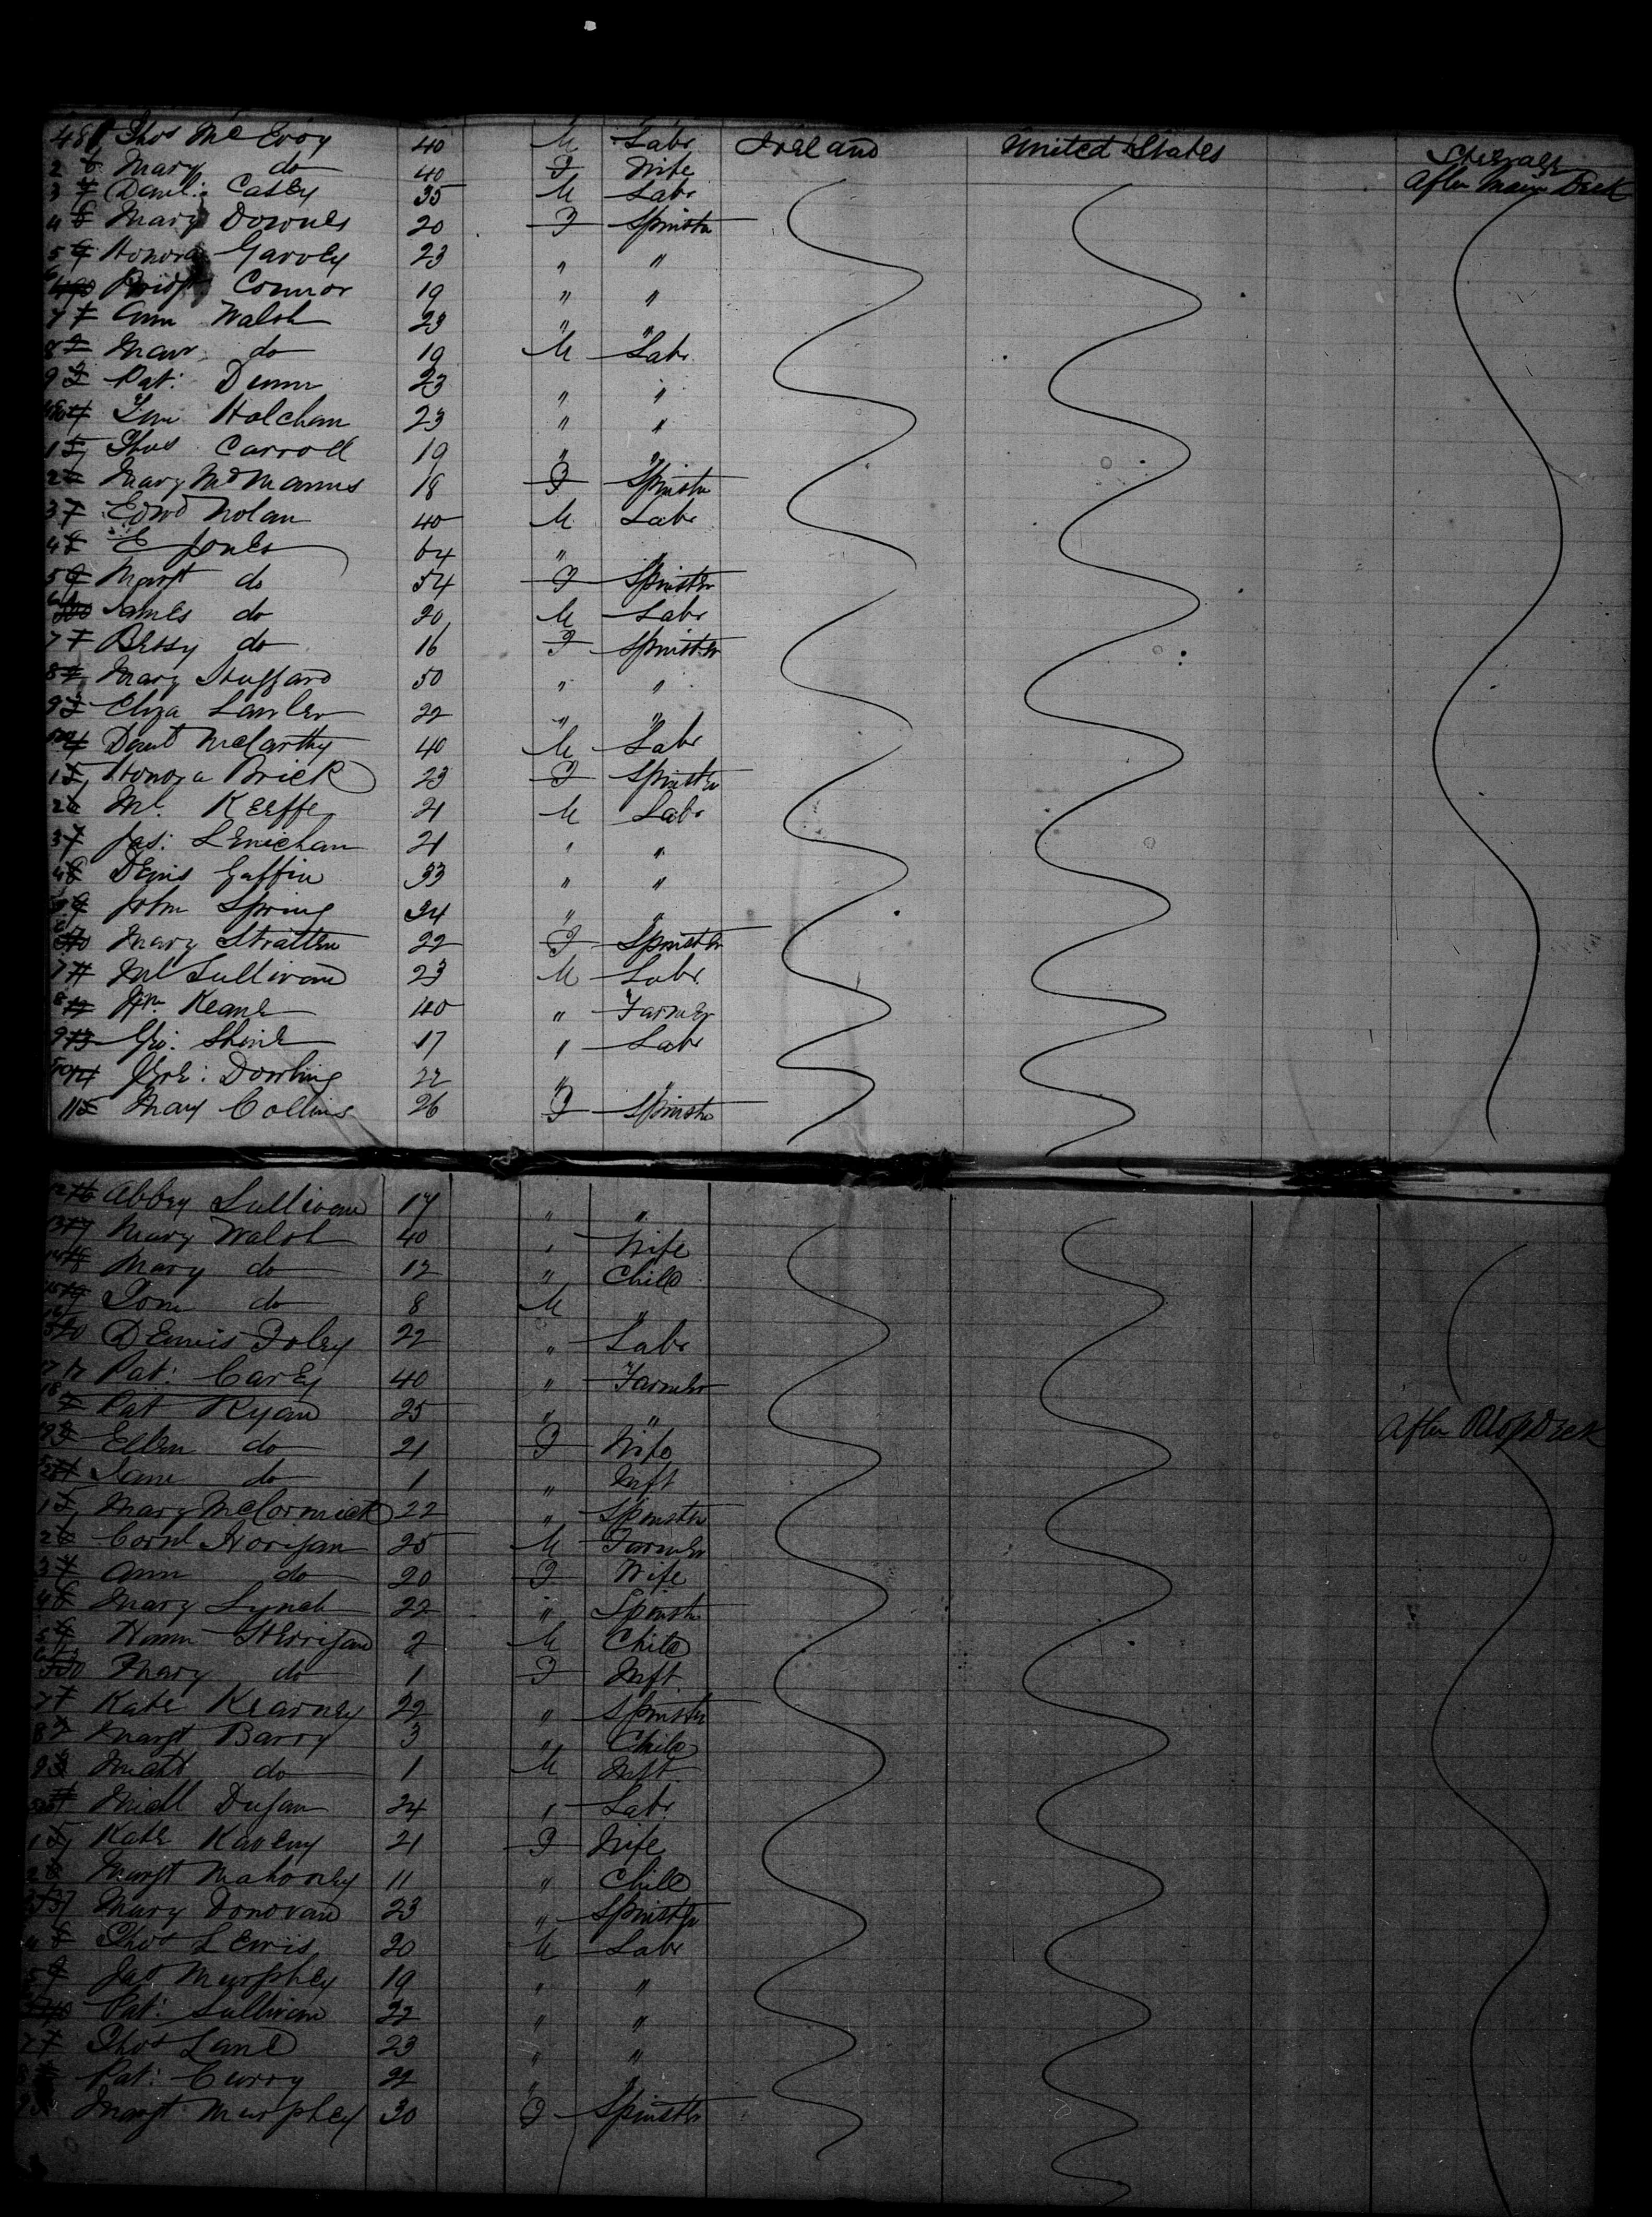 481 Thos McEvoy 40 M Labr Ireland United States Steerage
2 Mary do 40 F Wife After Main Deck
3 Danl: Casey 35 M Labr
4 Mary Downes 20 F Spinstr
5 Honora Garvey 23 " "
6 Bridgt Connor 19 " "
7 Ann Walsh 23 " "
8 do 19 M Labr
9 Pat: Dunn 23 " "
Holehan 23 " "
1 Thos Carroll 19 " "
2 Mary McManus 18 F Spinstr
3 Edwd Nolan 40 M Labr
4 E Jones 64 " "
5 Margt do 54 F Spinster
6 James do 20 M Labr
7 Betsy do 16 F Spinster
8 Mary 50 " "
9 Eliza Lawler 22 " "
McCarthy 40 M Labr
1 Honora Brick 23 F Spinster
2 Ml. Keeffe 21 M Labr
3 Jas: Lenichan 21 " "
4 Denis Gaffin 33 " "
John Spring 34 " "
Mary Stratten 22 F Spinster
7 Ml Sullivan 23 M Labr
8 Wm Keane 40 " Farmer
9 Shine 17 " Labr
Jere: Dowling 22 " "
11 Mary Collins 26 F Spinstr
12 Abbey Sullivan 17 " "
13 Mary Walsh 40 " Wife
14 Mary do 12 " Child
15 Tom do 8 M "
16 Dennis Foley 22 " Labr
17 Pat: Carey 40 " Farmer
18 Pat Ryan 25 " " After Poop Deck
19 Ellen do 21 F Wife
Jane do 1 " Inft
1 Mary McCormick 22 " Spinster
2 Cornl Horigan 25 M Farmer
3 Ann do 20 F Wife
4 Mary Lynch 22 " Spinstr
5 Herrigan 2 M Child
Mary do 1 F Inft.
7 Kate Kearney 22 " Spinster
8 Margt Barry 3 " Child
9 Matt do 1 M Inft.
Michl Dugan 24 " Labr
1 Kate Kaveny 21 F Wife
2 Margt Mahoney 11 " Child
3 Mary Donovan 23 " Spinster
4 Thos Lewis 20 M Labr
Jas Murphey 19 " "
Pat: Sullivan 22 " "
7 Thos Lane 23 " "
Pat: Curry 22 " "
Margt Murphey 30 F Spinster